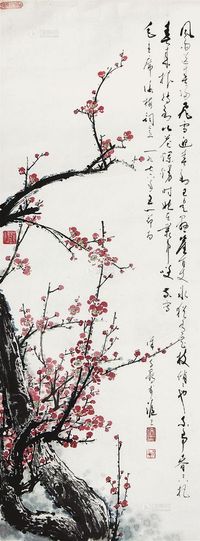 风雨送春归飞雪迎春到已是悬崖百丈冰犹有花枝俏俏也不争春只把
春来报待到山花烂漫时她在丛中笑
毛主席咏梅词意一九七六年五一节